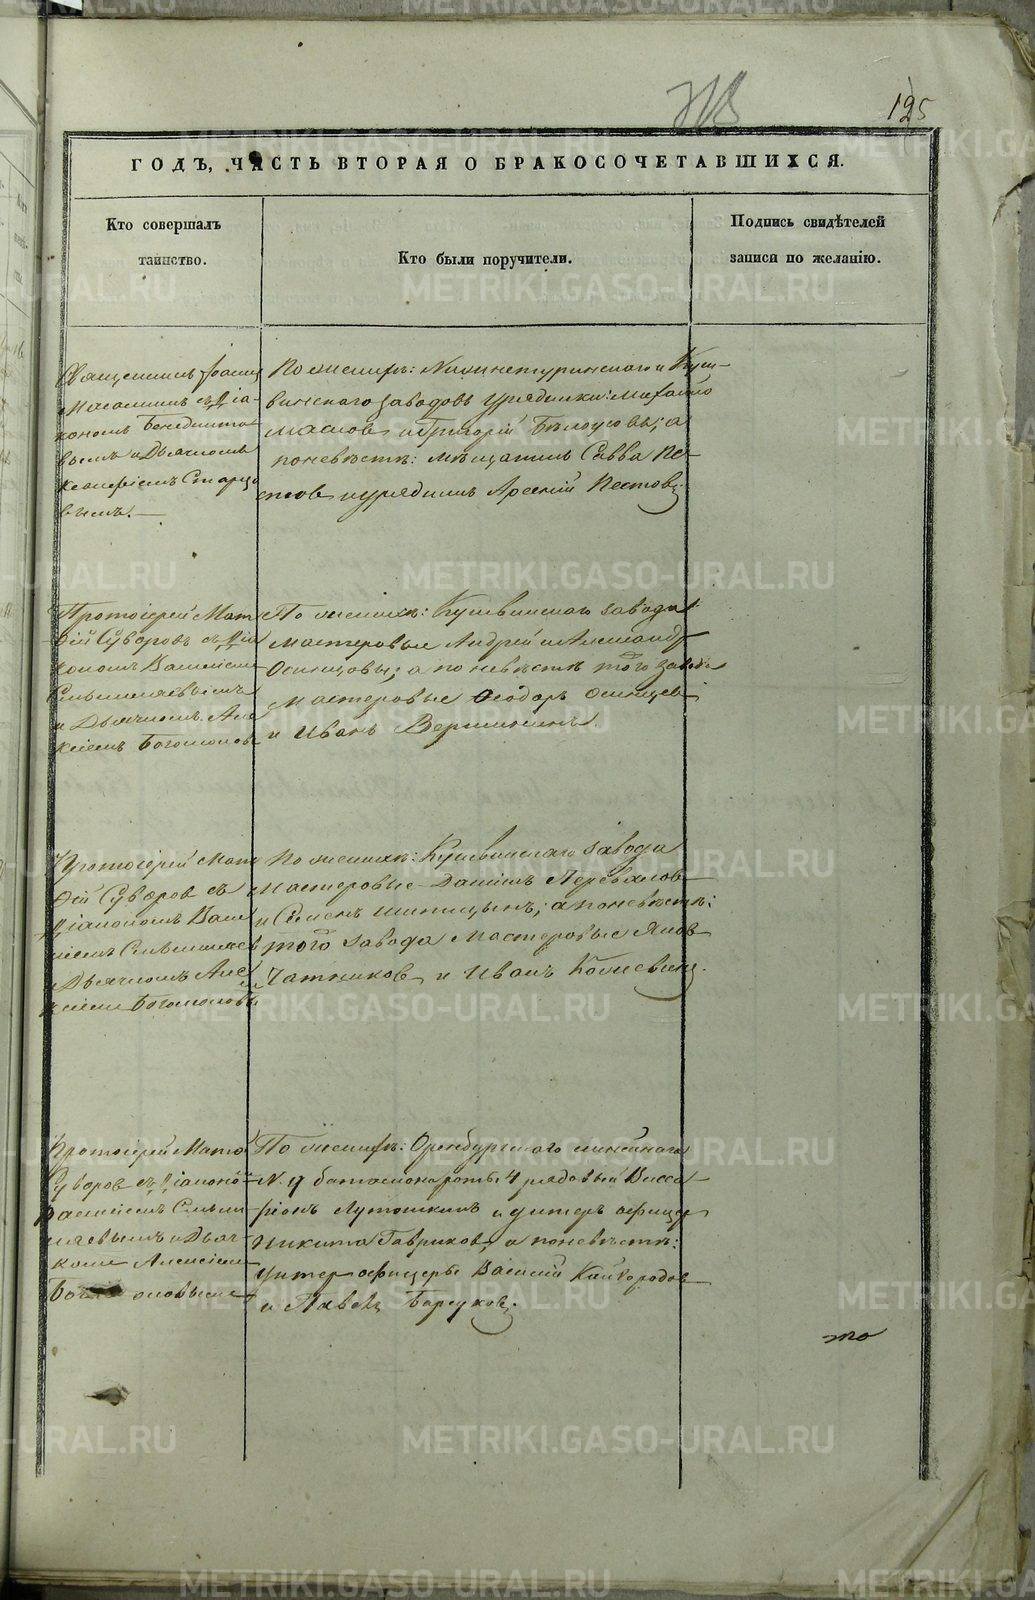 125
ГОДЪ, ЧАСТЬ ВТОРАЯ О БРАКОСОЧЕТАВШИХСЯ.
Кто совершалъ
таинство.
Кто были поручители.
Подпись свидѣтелей
записи по желанію.
Священникъ Іоаннъ
съ Діа-
кономъ
вымъ и Дьячкомъ
Старце
вымъ.
По женихѣ: Нижнетуринскаго и Куш-
винскаго заводовъ урядники: Михайло
Маслов и Григорій Бѣлоусовы; а
по невѣстѣ: мѣщанинъ Савва Пе-
стов и урядникъ Арсений Пестовъ.
Протоіерей Мат
ѳій Суворовъ съ Діа
кономъ Василіем
и Дьячкомъ Але
ксіемъ Богомолов
По женихѣ: Кушвинскаго завода
мастеровые Андрей и Александр
Осинцовы; а по невѣстѣ того завода
мастеровые Ѳеодоръ Осинцев
и Иванъ Вершининъ.
Протоіерей Мат
ѳій Суворов съ
Діакономъ Васи
ліемъ
Дьячкомъ Але
ксіем Богомоловы
По женихѣ: Кушвинскаго завода
мастеровые Данилъ Перевалов
и Семенъ Шипицынъ; а по невѣстѣ:
того завода мастеровые Яков
и Иванъ
Протоіерей Матѳ
Суворов съ Діаконо
Василіемъ
и Дьяч
комъ Алексіем
Бог оловыме
По женихѣ: Оренбургскаго линейнаго
N. 9 баталиона роты 4 рядовый Висса
ріонъ Лутошкинъ и унтеръ офицер
Никита Гавриков, а по невѣстѣ:
Унтер офицеры Василій Кайгородов
и Павелъ Барсуковъ.
то
METRIKI.GASO-URAL.RU